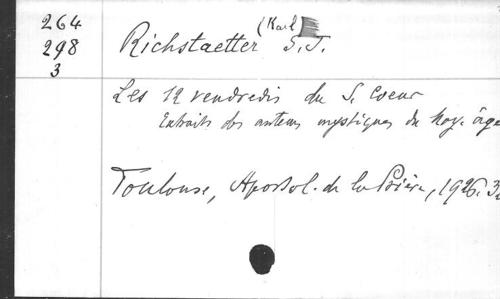 264
298
3
Richstaetter (Karl) S.J.
Les 12 vendredis du S. Coeur
Extraits des auteurs mystiques du moy. âge
Toulouse, Apostol. de la Prière, 1926. 32